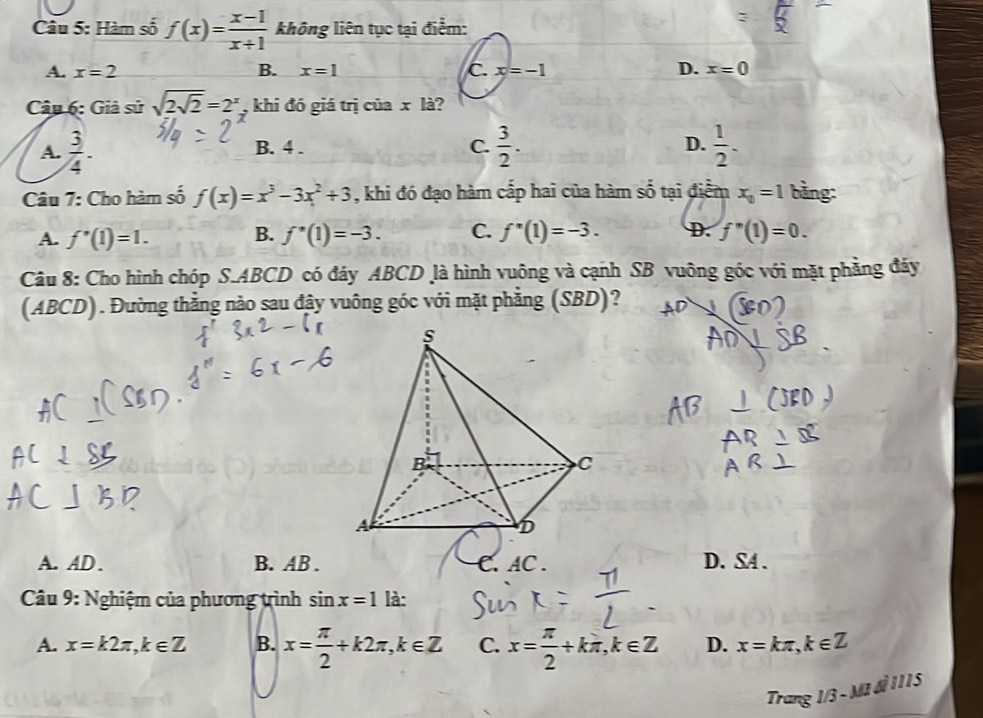 Câu 5: Hàm số f(x)= x−1/x+1 không liên tục tại điểm:
A. x=2 B. x=1 C. x=−1 D. x=0
Câu 6: Giả sử √(2√2) = 2^x, khi đó giá trị của x là?
3/4 = 2^x
A. 3/4. B. 4. C. 3/2. D. 1/2.
Câu 7: Cho hàm số f(x)=x³−3x²+3, khi đó đạo hàm cấp hai của hàm số tại điểm x₀=1 bằng:
A. f"(1)=1. B. f"(1)=−3. C. f"(1)=−3. D. f"(1)=0.
Câu 8: Cho hình chóp S.ABCD có đáy ABCD là hình vuông và cạnh SB vuông góc với mặt phẳng đáy
(ABCD). Đường thẳng nào sau đây vuông góc với mặt phẳng (SBD)?
f' 3x2 − 6x
f" = 6x − 6
AC ⊥ (SBD).
AC ⊥ SB
AC ⊥ BD
AD ⊥ (SBD)
AD ⊥ SB.
AB ⊥ (SBD)
AB ⊥ SB
AB ⊥
S
B
C
A
D
A. AD. B. AB. C. AC. D. SA.
Câu 9: Nghiệm của phương trình sin x=1 là:
Sin x = π/2.
A. x=k2π, k∈Z B. x=π/2+k2π, k∈Z C. x=π/2+kπ, k∈Z D. x=kπ, k∈Z
Trang 1/3 - Mã đề 1115